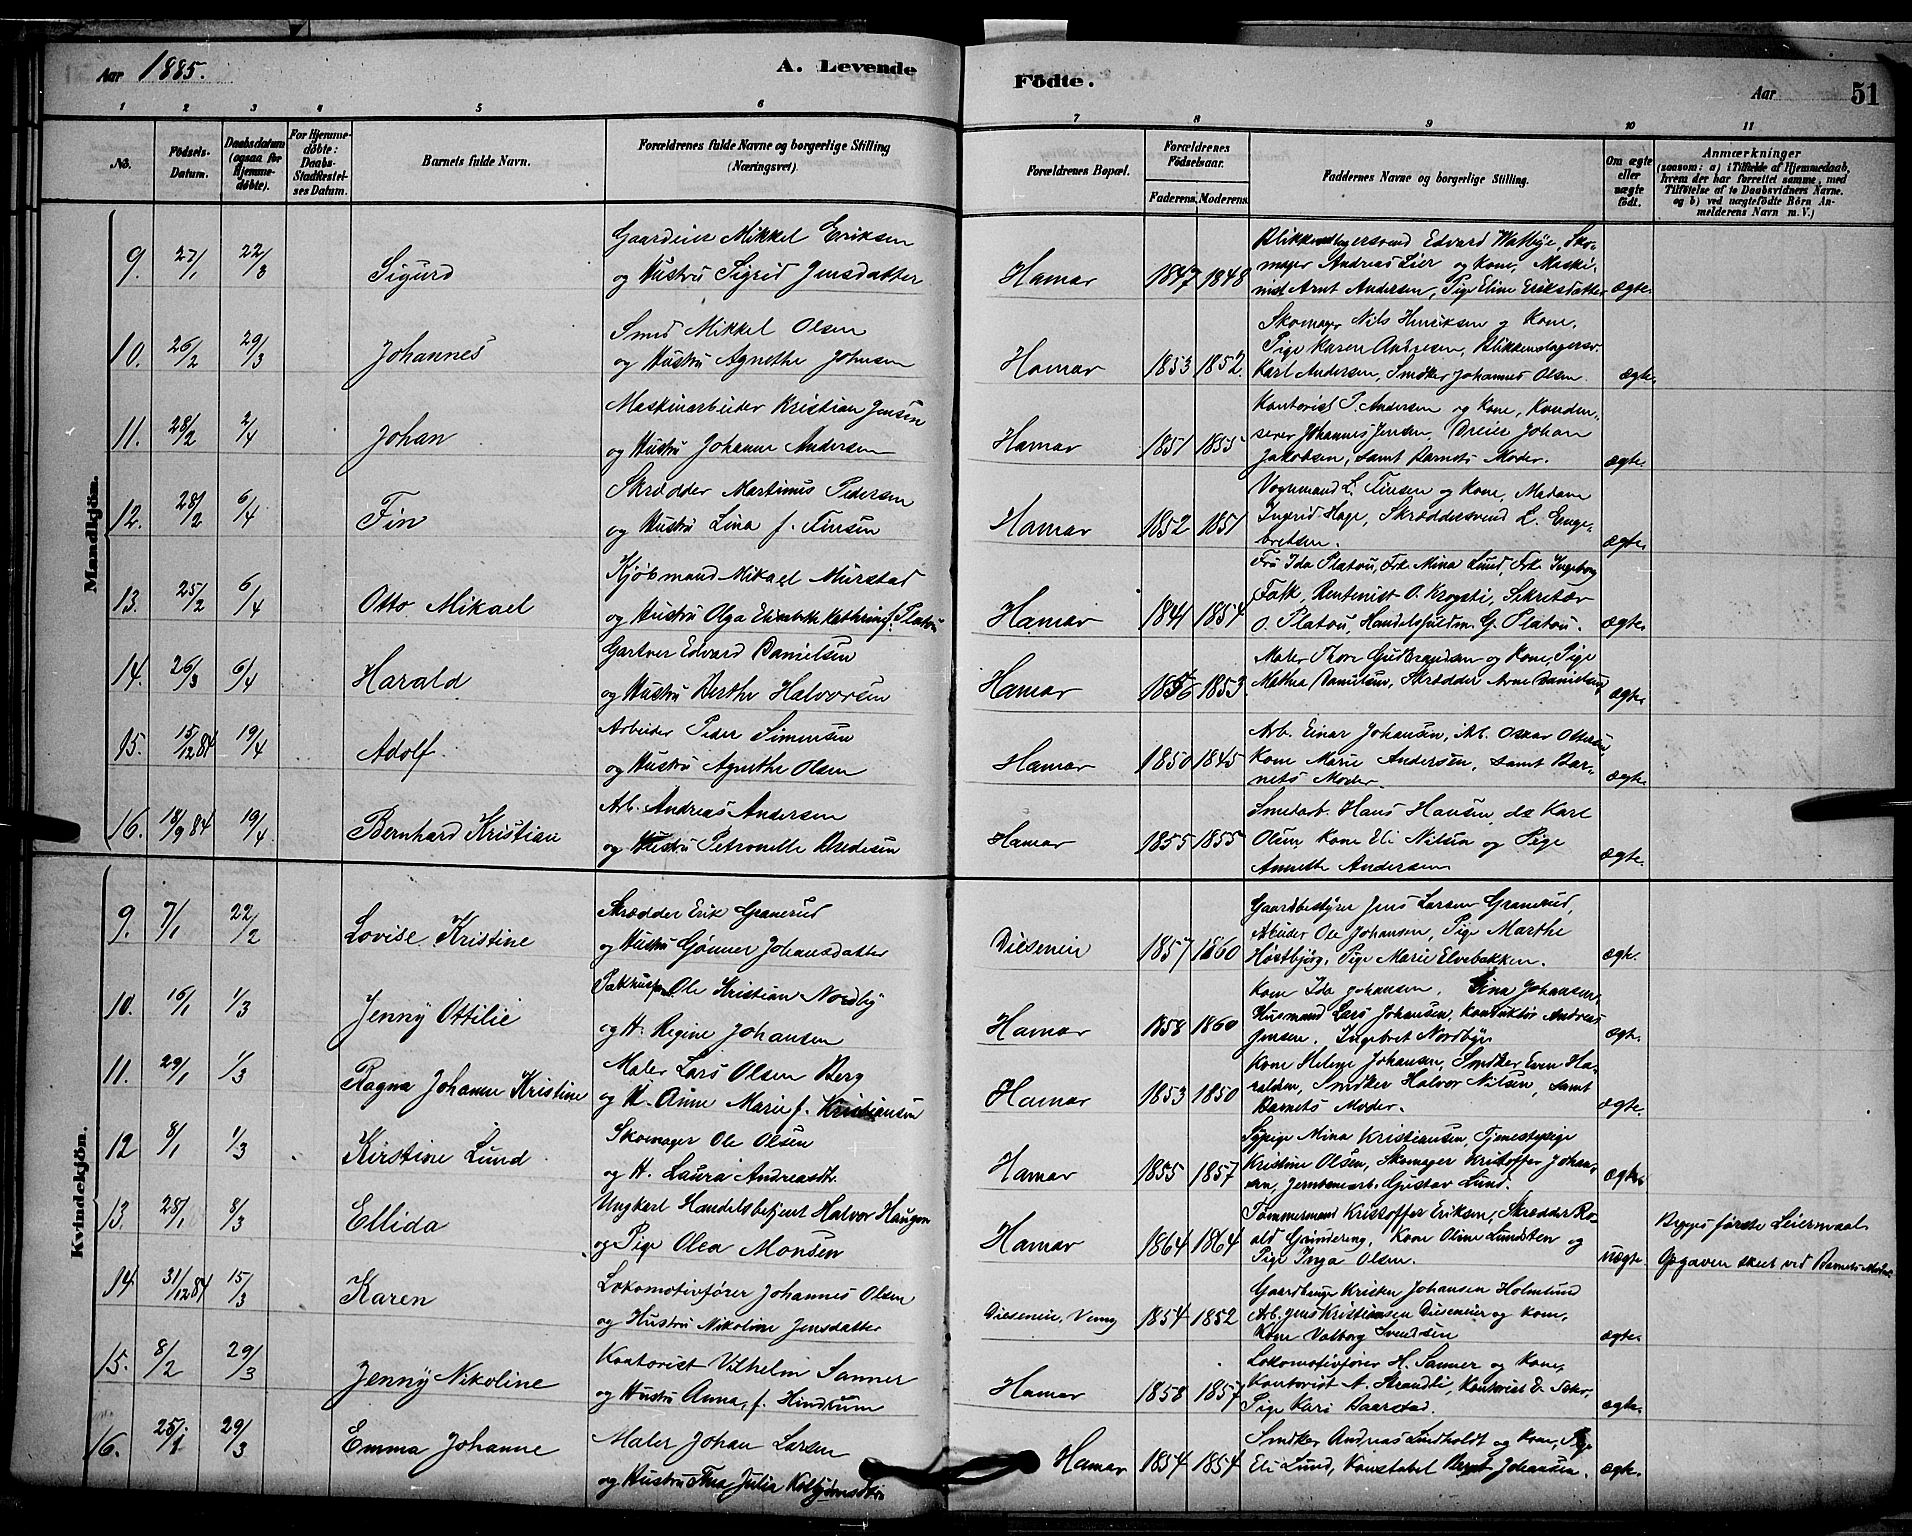 Aar 1885.
A. Levende
Födte.
Aar
51
1 2 3 4 5 6 7 8 9 10 11
No.
Födsels-
Datum.
Daabsdatum
(ogsaa for
Hjemme-
döbte).
For Hjemme-
döbte:
Daabs-
Stadfæstel-
ses Datum.
Barnets fulde Navn.
Forældrenes fulde Navne og borgerlige Stilling
(Næringsvei).
Forældrenes Bopæl.
Forældrenes
Födselsaar.
Faderens. Moderens.
Faddernes Navne og borgerlige Stilling.
Om ægte
eller
uægte
födt.
Anmærkninger
(saasom: a) i Tilfælde af Hjemmedaab,
hvem der har forrettet samme, med
Tilföielse af to Daabsvidners Navne.
og b) ved uægtefödte Börn An-
melderens Navn m. V.)
Mandkjön.
9. 27/1 22/3 Sigurd
Gaardeier Mikkel Eriksen
og Hustru Sigrid Jensdatter
Hamar 1847 1848
Blikkenslagersvend Edvard Watbye, Sko-
mager Andreas Lier og Kone, Maski-
nist Arnt Andersen, Pige Eline Eriksdatter
ægte.
10. 26/2 29/3 Johannes
Smed Mikkel Olsen
og Hustru Agnethe Johnsen
Hamar 1853 1852.
Skomager Nils Henriksen og Kone,
Pige Karen Andresen, Blikkenslagersv.
Karl Andersen, Snedker Johannes Olsen.
ægte.
11. 28/2 2/4 Johan
Maskinarbeider Kristian Jensen
og Hustru Johanne Andersen
Hamar 1851 1855
Kontorist P. Andersen og Kone, Konden-
serer Johannes Jensen, Dreier Johan
Jakobsen, samt Barnets Moder.
ægte.
12. 28/2 6/4 Fin
Skrædder Martinus Pedersen
og Hustru Lina f. Finsen
Hamar 1852 1851
Vognmand L. Finsen og Kone, Madam
Ingrid Hage, Skræddersvend L. Enge-
bretsen.
ægte.
13. 25/2 6/4 Otto Mikael
Kjöbmand Mikael Mürstad
og Hustru Olga Elisabeth Kathrine f. Platou
Hamar 1841 1854
Fru Ida Platou, Frk. Mina Lund, Frk. Ingeborg
Falk, Rentenist O. Krogsti, Sekretær
O. Platou, Handelsfuldm. G. Platou.
ægte.
14. 26/3 6/4 Harald
Gartner Edvard Danielsen
og Hustru Berthe Halvorsen
Hamar 1856 1853
Maler Thore Gudbrandsen og Kone, Pige
Mathea Danielsen, Skrædder Arne Danielsen,
ægte.
15. 15/12 84 19/4 Adolf
Arbeider Peder Simensen
og Hustru Agnethe Olsen
Hamar 1850 1845
Arb. Einar Johansen, Arb. Oskar Ottesen
Kone Marie Andersen, samt Bar-
nets Moder.
ægte.
16. 18/9 84 19/4 Bernhard Kristian
Arb. Andreas Andersen
og Hustru Petronelle Bredesen
Hamar 1855 1855
Smedarb. Hans Hansen, do Karl
Olsen Kone Eli Nilsen og Pige
Annethe Andersen
ægte.
Kvindekjön.
9. 7/1 22/2 Lovise Kristine
Skrædder Erik Granerud
og Hustru Gönner Johansdatter
Dieseneie 1857 1860
Gaardbestyrer Jens Larsen Granerud,
Arbeider Ole Johansen, Pige Marthe
Höstbjörg, Pige Marie Elvebakken.
ægte.
10. 16/1 1/3 Jenny Ottilie
Pakhusf. Ole Kristian Nordby
og H. Regine Johansen
Hamar 1858 1860
Kone Ida Johansen, Lina Johansen,
Husmand Lars Johansen, Konduktör Andreas
Jensen, Ingebret Nordbye
ægte.
11. 29/1 1/3 Ragna Johanne Kristine
Maler Lars Olsen Berg
og H. Anne Marie f. Kristiansen
Hamar 1853 1850
Kone Helene Johansen, Snedker Even Ha-
raldsen, Snedker Halvor Nilsen, samt
Barnets Moder.
ægte.
12 8/1 1/3 Kirstine Lund
Skomager Ole Olsen
og H. Laura Andreasdtr.
Hamar 1855 1857
Sypige Mina Kristiansen, Tjenestepige
Kristine Olsen, Skomager Kristoffer Johan-
sen, Jernbanearb. Gustav Lund.
ægte.
13. 28/1 8/3 Ellida
Ungkarl Handelsbetjent Halvor Haugen
og Pige Olea Monsen
Hamar 1864 1864
Tømmermand Kristoffer Eriksen, Skrædder Ro-
ald Grindering, Kone Oline Lundsten og
Pige Inga Olsen.
uægte
Begges förste Leiermaal
Opgaven skeet ved Barnets Moder
14. 31/12 84 15/3 Karen
Lokomotivförer Johannes Olsen
og Hustru Nikoline Jensdatter
Dieseneie, Vang 1854 1852
Gaardbruger Kristen Johansen Holmlund
Arb. Jens Kristiansen Dieseneie og Kone,
Kone Valborg Svendsen
ægte.
15. 8/2 29/3 Jenny Nikoline
Kontorist Vilhelm Sanner
og Hustru Anna, f. Hindrum
Hamar 1858 1857
Lokomotivförer H. Sanner og Kone,
Kontorist A. Strandli, Kontorist
Pige Kari Baarstad.
ægte.
16. 25/1 29/3 Emma Johanne
Maler Johan Larsen
og Hustru Thea Julie
Hamar 1854 1854
Snedker Andreas Lindholdt og Kone, Pige
Eli Lund, Konstabel Johansen.
ægte.